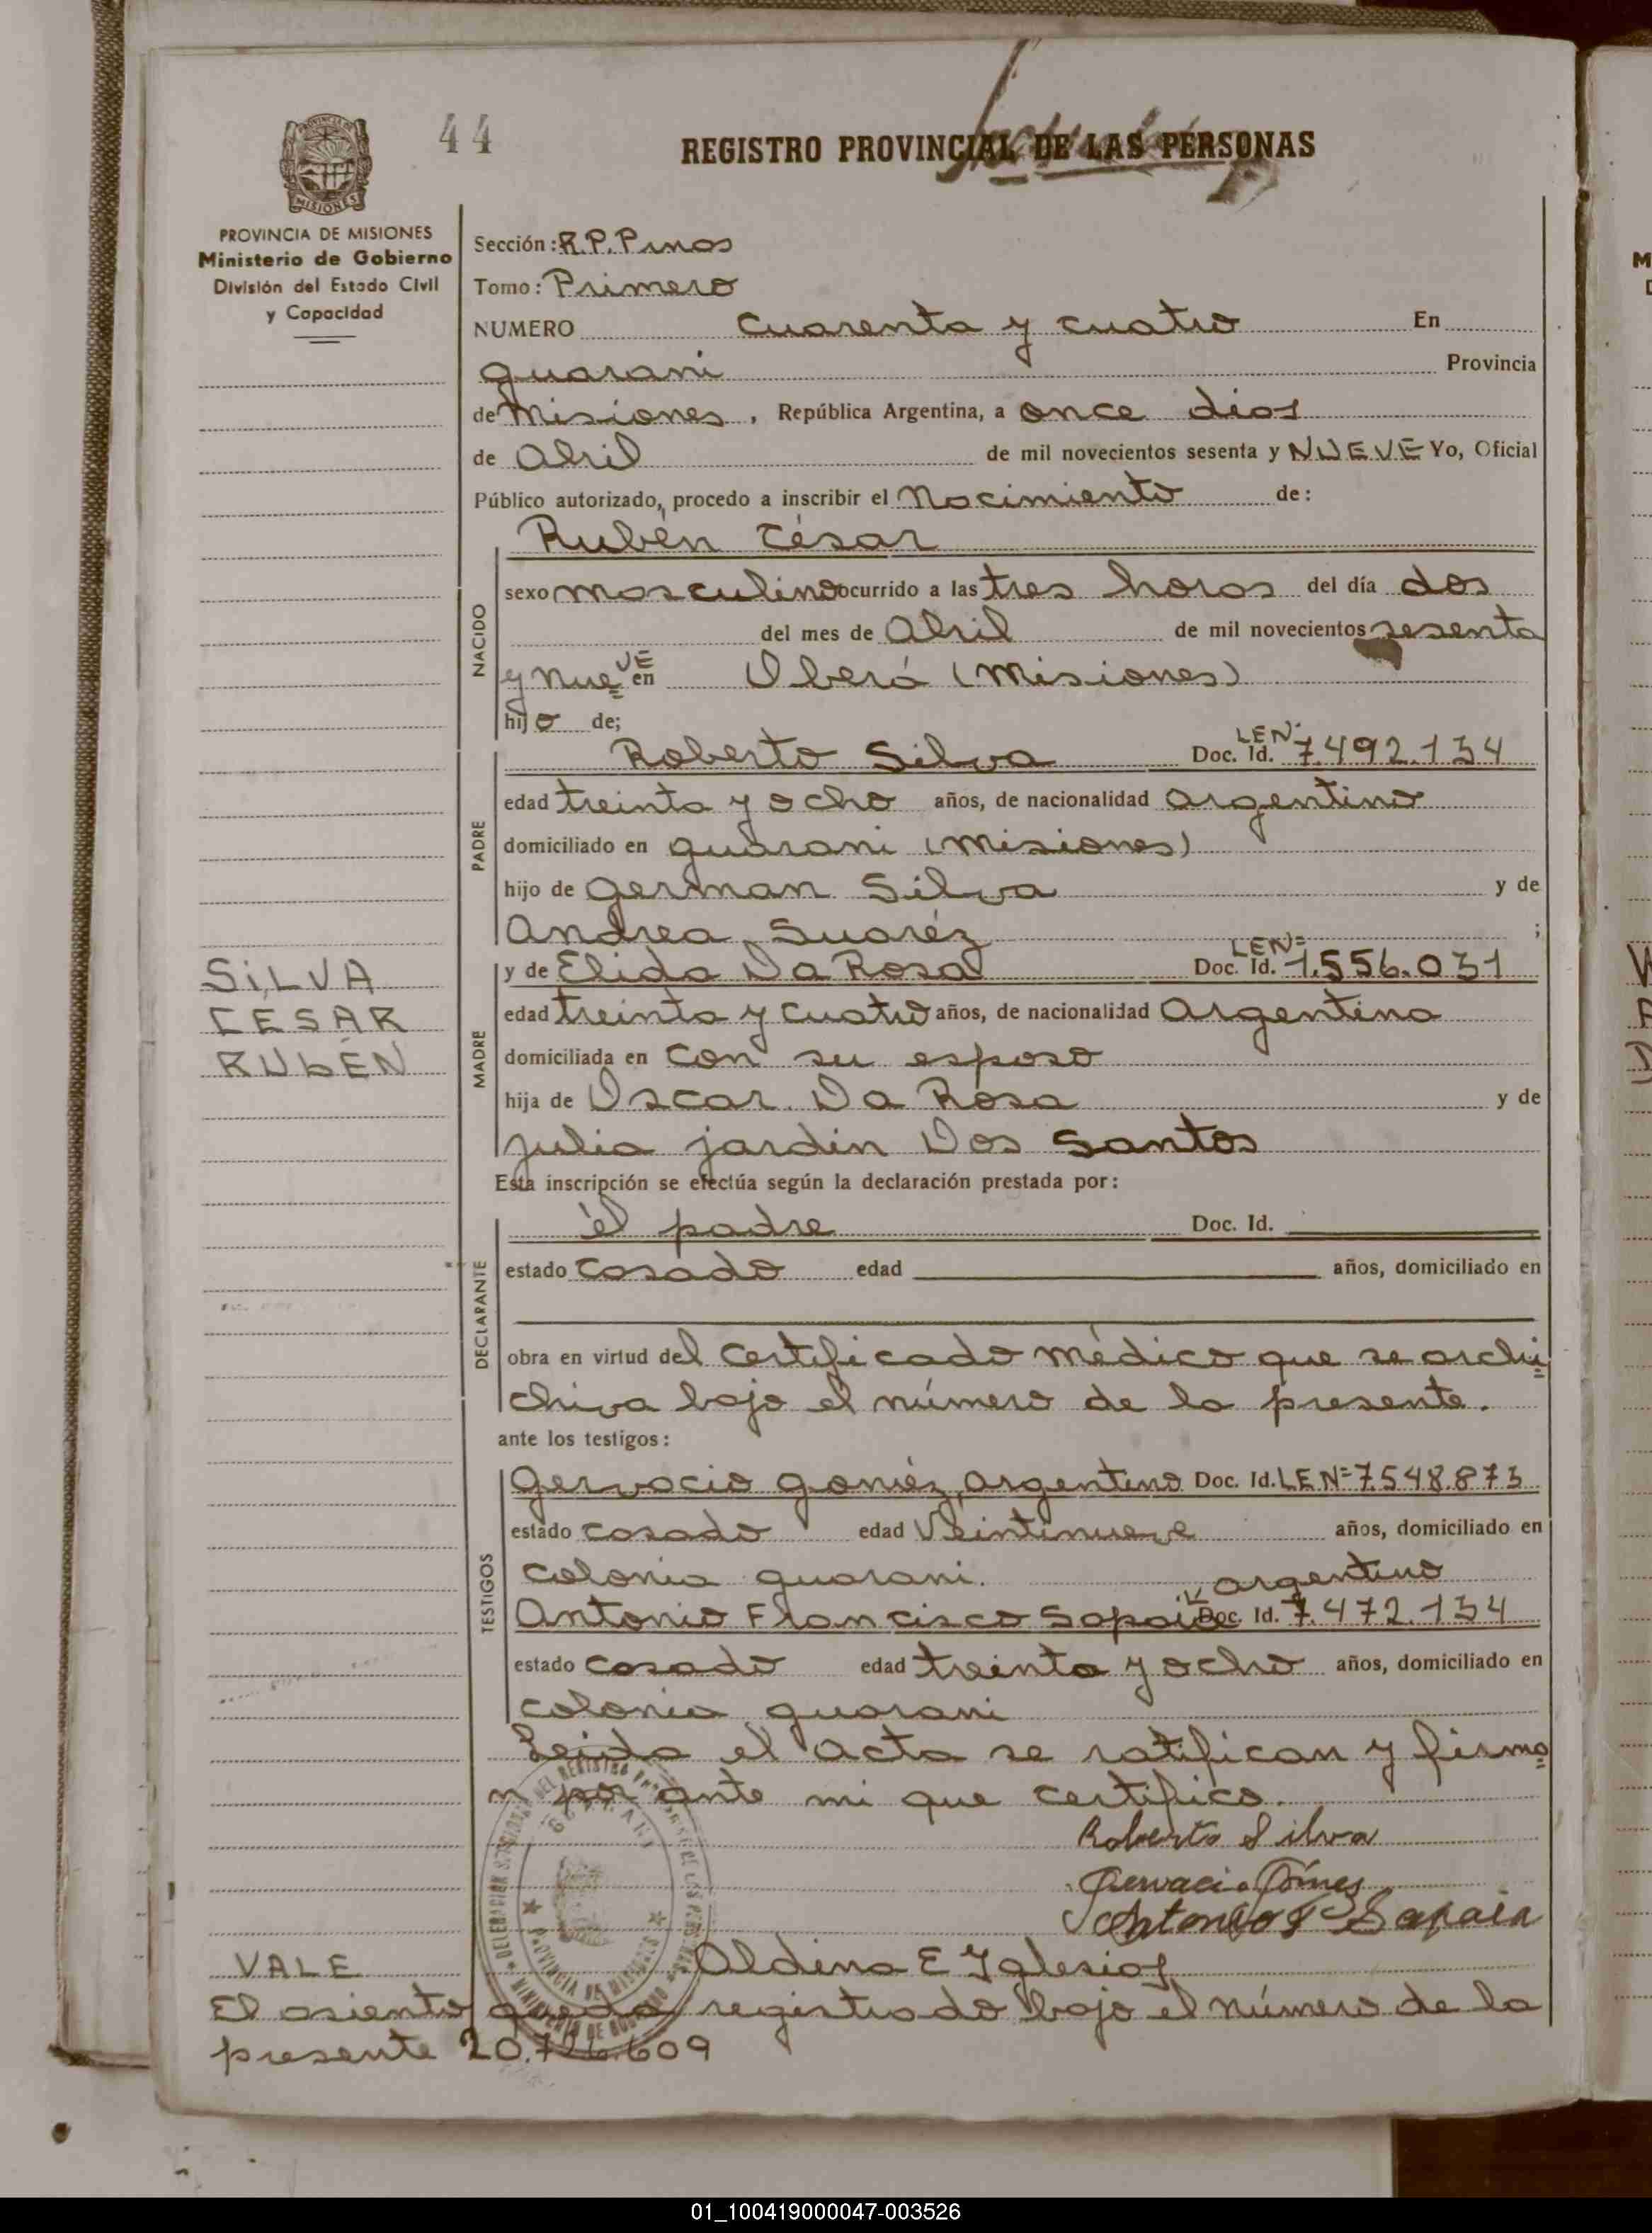 44
REGISTRO PROVINCIAL DE LAS PERSONAS
PROVINCIA DE MISIONES
Ministerio de Gobierno
División del Estado Civil
y Capacidad
Sección: R.P. Pinos
Tomo: Primero
NUMERO Cuarenta y cuatro En
guarani Provincia
de Misiones, República Argentina, a once dias
de Abril de mil novecientos sesenta y NUEVE Yo, Oficial
Público autorizado, procedo a inscribir el Nacimiento de:
Rubén César
NACIDO
sexo masculino ocurrido a las tres horas del día dos
del mes de Abril de mil novecientos sesenta
y nueVE en Oberá (Misiones)
hijo de;
PADRE
Roberto Silva Doc. Id. LEN° 7.492.134
edad treinta y ocho años, de nacionalidad argentino
domiciliado en guarani (misiones)
hijo de german Silva y de
Andrea Suaréz ;
SILVA
CESAR
RUBÉN
MADRE
y de Elida Da Rosa Doc. Id. LEN= 1.556.031
edad treinta y cuatro años, de nacionalidad Argentina
domiciliada en con su esposo
hija de Oscar Da Rosa y de
julia jardin Dos Santos
Esta inscripción se efectúa según la declaración prestada por:
DECLARANTE
él padre Doc. Id.
estado casado edad años, domiciliado en
obra en virtud del certificado médico que se archi
chiva bajo el número de la presente.
ante los testigos:
TESTIGOS
gervacio goméz, argentino Doc. Id. LEN= 7.548.873
estado casado edad Veintinueve años, domiciliado en
colonia guarani. argentino
Antonio Francisco Sapaia Doc. Id. 7.472.134
estado casado edad treinta y ocho años, domiciliado en
colonia guarani
Leida el acta se ratifican y firma
n por ante mi que certifico.
Roberto Silva
Gervacio Gómes
Antonio F Sapaia
VALE
Aldina E Yglesias
El asiento queda registrado bajo el número de la
presente 20.726.609
01_100419000047-003526